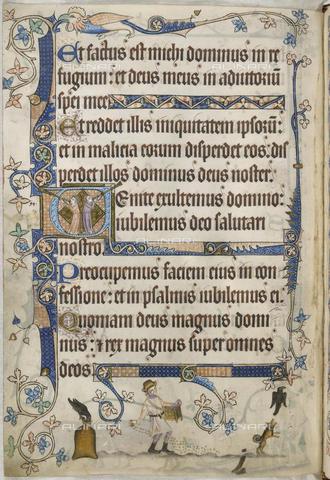 Et factus est michi dominus in re
fugium: et deus meus in adiutoriū
spei mee
Et reddet illis iniquitatem ipsorū:
et in malicia eorum disperdet eos: dis
perdet illos dominus deus noster.
Uenite exultemus domino:
iubilemus deo salutari
nostro.
Preocupemus faciem eius in con
fessione: et in psalmis iubilemus ei.
Quoniam deus magnus domi
nus: et rex magnus super omnes
deos.
ALINARI
ALINARI